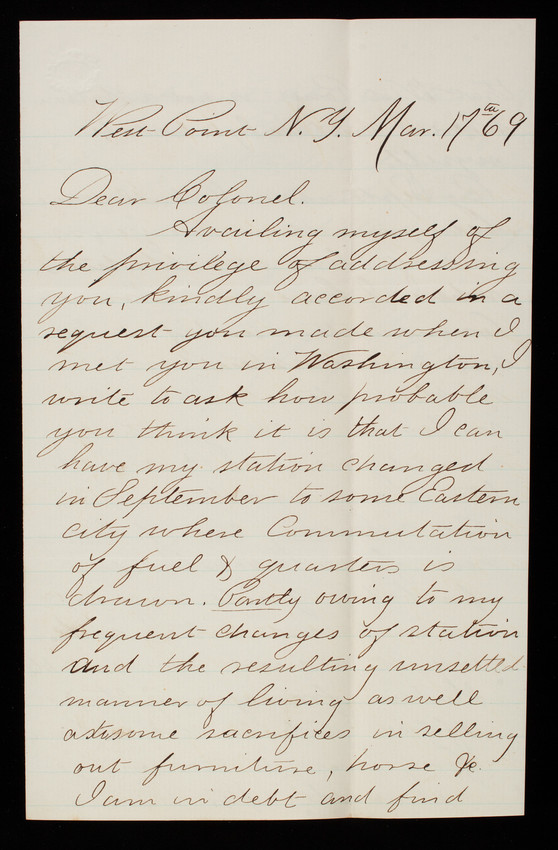 West Point N.Y. Mar. 17th 69
Dear Colonel.
Availing myself of
the privilege of addressing
you, kindly accorded in a
request you made when I
met you in Washington, I
write to ask how probable
you think it is that I can
have my station changed
in September to some Eastern
city where Commutation
of fuel & quarters is
drawn. Partly owing to my
frequent changes of station
and the resulting unsettled
manner of living as well
as some sacrifices in selling
out furniture, horse &c.
I am in debt and find